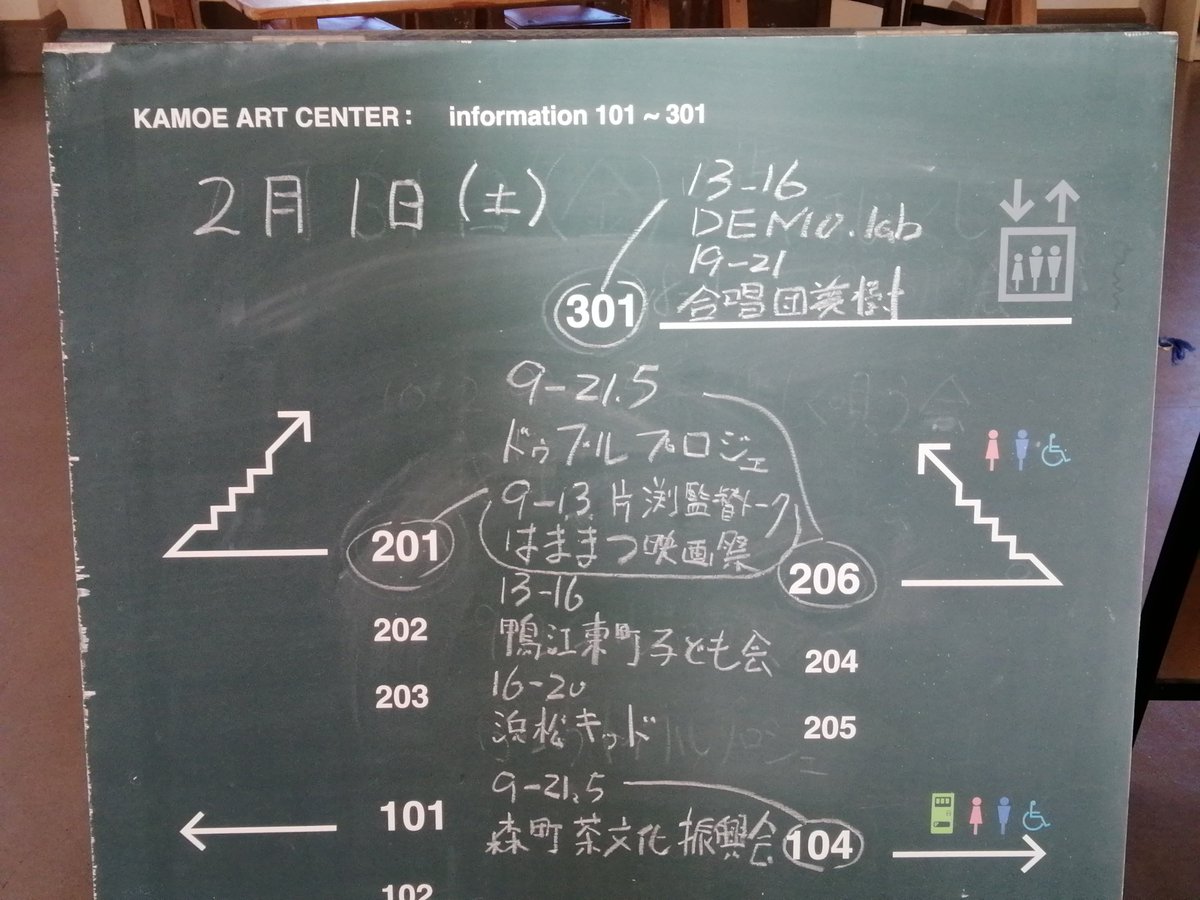 KAMOE ART CENTER: information 101 ~ 301
2月1日(土)
13-16
DEMO.lab
19-21
合唱団美樹
301
9-21.5
ドゥブルプロジェ
9-13 片渕監督トーク
はままつ映画祭
201
206
13-16
鴨江東町子ども会
202
204
16-20
浜松キッド
203
205
9-21.5
森町茶文化振興会
101
104
102